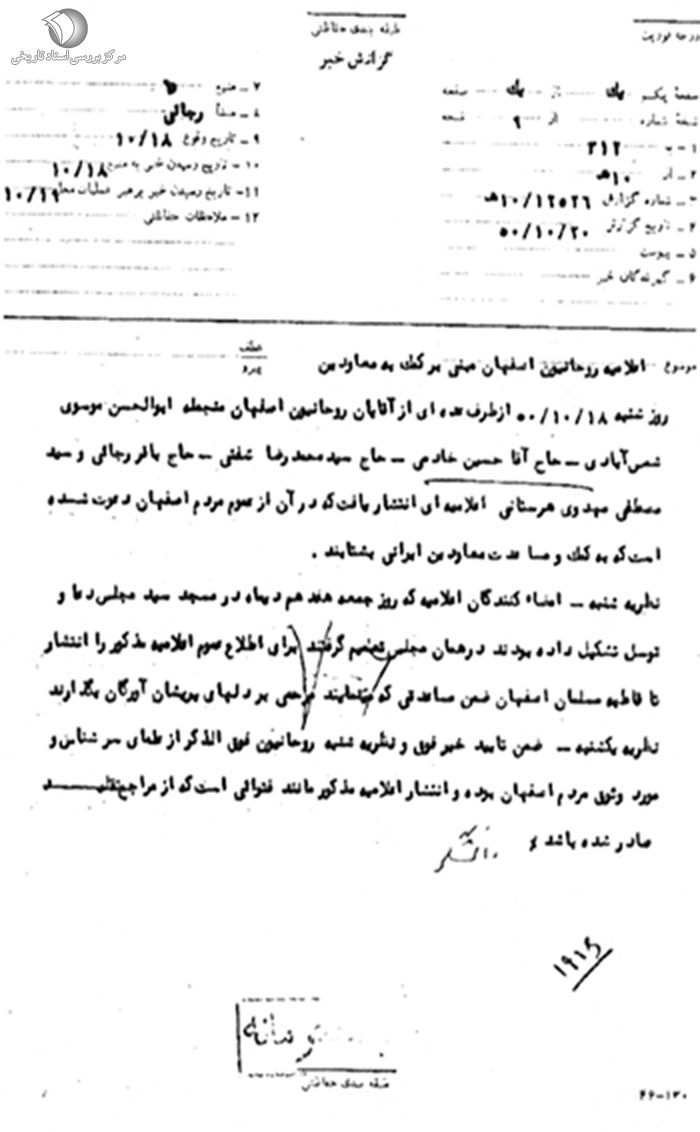 مرکز بررسی اسناد تاریخی
طبقه بندی حفاظتی
گزارش خبر
درجه فوریت
صفحهٔ یکم یك از یك صفحه
نسخهٔ شماره از ۹ نسخه
۱ـ به ۳۱۲
۲ـ از ۱۰هـ
۳ـ شماره گزارش ۱۰/۱۲۵۲۶هـ
۴ـ تاریخ گزارش ۵۰/۱۰/۲۰
۵ـ پیوست
۶ـ گیرندگان خبر
۷ـ منبع
۸ـ منشأ رجائی
۹ـ تاریخ وقوع ۱۰/۱۸
۱۰ـ تاریخ رسیدن خبر به منبع ۱۰/۱۸
۱۱ـ تاریخ رسیدن خبر برهبر عملیات محل ۱۰/۱۹
۱۲ـ ملاحظات حفاظتی
موضوع اعلامیه روحانیون اصفهان مبنی بر کمك به معاودین
عطف
پیرو
روز شنبه ۵۰/۱۰/۱۸ از طرف عده ای از آقایان روحانیون اصفهان منجمله ابوالحسن موسوی
شمس آبادی ـ حاج آقا حسین خادمی ـ حاج سید محمد رضا شفتی ـ حاج باقر رجائی و سید
مصطفی مهدوی هرستانی اعلامیه ای انتشار یافت که در آن از عموم مردم اصفهان دعوت شده
است که به کمك و مساعدت معاودین ایرانی بشتابند .
نظریه شنبه ـ امضاء کنندگان اعلامیه که روز جمعه هفدهم دیماه در مسجد سید مجلس دعا و
توسل تشکیل داده بودند در همان مجلس تصمیم گرفتند برای اطلاع عموم اعلامیه مذکور را انتشار
تا قاطبه مسلمان اصفهان ضمن مساعدتی که مینمایند مرحمی بر دلهای پریشان آورگان بگذارند
نظریه یکشنبه ـ ضمن تایید خبر فوق و نظریه شنبه روحانیون فوق الذکر از علمای سرشناس و
مورد وثوق مردم اصفهان بوده و انتشار اعلامیه مذکور مانند فتوائی است که از مراجع تقلید
صادر شده باشد
۱۹۱۵
طبقه بندی حفاظتی
۴۶-۱۳۰